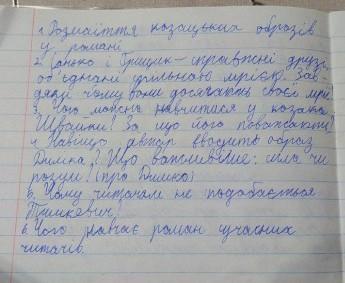 1. Розмаїття козацьких образів
у романі
2. Санько і Грицик – справжні друзі,
об'єднані спільною мрією. Зав-
дяки чому вони досягають своєї мрії
3. Чого можна навчитися у козака
Швайки? За що його поважають?
4. Навіщо автор вводить образ
Димка? Що важливіше: сила чи
розум? (про Димка)
5. Чому читачам не подобається
Тишкевич?
6. Чого навчає роман сучасних
читачів.